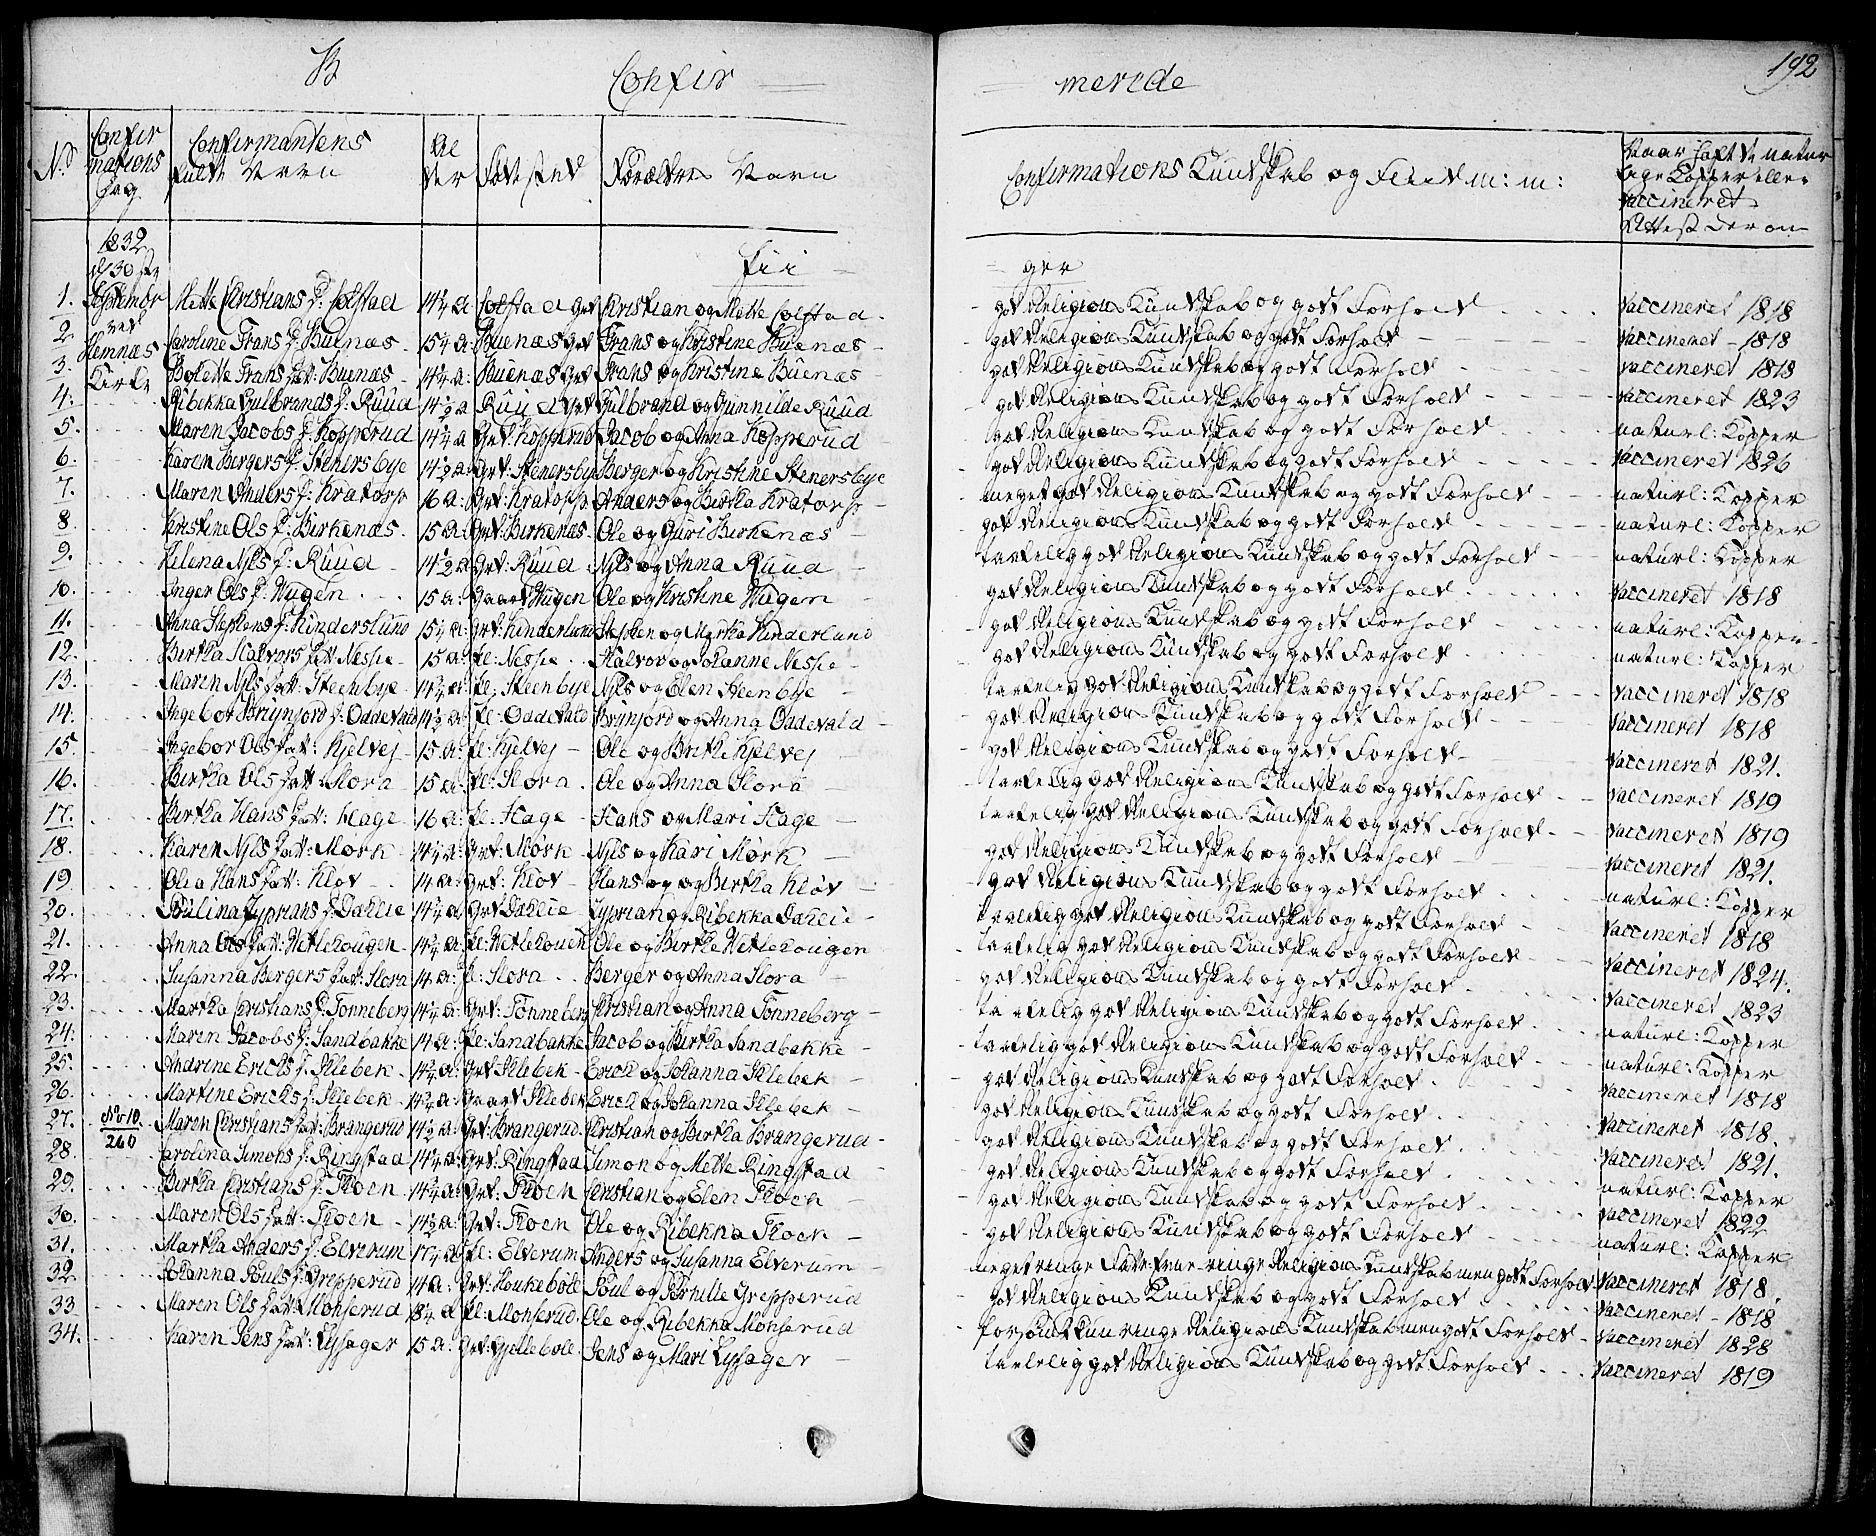 B
Confir
merede
192
No
Confirmations Dag
Confirmantens fulde Navn
Alder
Fødested
Forældres Navn
Confirmations Kundskab og Fliid m: m:
Naar haft de naturlige Kopper eller vaccineret Attest derom
1832 d 30 ste September ved Hemnæs Kirke
Pi
ger
1. Mette Christians D: 14 1/4 a Christian og Mette god Religions Kundskab og godt Forhold vaccineret 1818
2. Caroline Frans D: Buenæs 15 1/4 a: Buenæs Grd Frans og Kristine Buenæs god Religions Kundskab og godt Forhold vaccineret - 1818
3. Bolette Frans Dat: Buenæs 14 1/4 a: Buenæs Grd Frans og Kristine Buenæs god Religions Kundskab og godt Forhold vaccineret 1818
4. Ribekka Gulbrands D: Ruud 14 1/2 a Ruud Grd Gulbrand og Gunnilde Ruud god Religions Kundskab og godt Forhold vaccineret 1823
5. Maren Jacobs D: Kopperud 14 1/4 a Grd: Kopperud Jacob og Anna Kopperud god Religions Kundskab og godt Forhold naturl: Kopper
6. Karen Bergers D: Stenersbye 14 1/2 a: Grd: Stenersby Berger og Kristine Stenersbye god Religions Kundskab og godt Forhold vaccineret 1826
7. Maren Anders D: Kratorp 16 a: Grd: Kratorp Anders og Birtha Kratorp meget god Religions Kundskab og godt Forhold naturl: Kopper
8. Kristine Ols D: Birkenæs 15 a: Grd: Birkenæs Ole og Guri Birkenæs god Religions Kundskab og godt Forhold naturl: Kopper
9. Helena Nils D: Ruud 14 1/2 a Grd: Ruud Nils og Anna Ruud taalelig god Religions Kundskab og godt Forhold naturl: Kopper
10. Inger Ols D: Hugen 15 a: Gaard Hugen Ole og Kristine Hugen god Religions Kundskab og godt Forhold vaccineret 1818
11. Anna Stephens D: Kinderslund 15 1/4 a: Grd: Kinderlund Stephen og Martha Kinderlund god Religions Kundskab og godt Forhold naturl: Kopper
12. Birtha Halvors Dat: Neshe 15 a: Pl: Neshe Halvor og Johanne Neshe god Religions Kundskab og godt Forhold naturl: Kopper
13. Maren Nils Dat: Steenbye 14 1/4 a: Pl: Steenbye Nils og Elen Steenbye taalelig god Religions Kundskab og godt Forhold vaccineret 1818
14. Ingebor Brynjord D: Oddevald 14 1/2 a: Pl: Oddevald Brinjord og Anna Oddevald god Religions Kundskab og godt Forhold vaccineret 1818
15. Ingebor Ols Dat: Kjelvej 15 a: Pl: Kjelvej Ole og Birthe Kjelvej god Religions Kundskab og godt Forhold vaccineret 1821.
16. Birtha Ols Dat: Slora 15 a: Pl: Slora Ole og Anna Slora taalelig god Religions Kundskab og godt Forhold vaccineret 1819
17. Birtha Hans Dat: Hage 16 a: Pl: Hage Hans og Mari Hage taalelig god Religions Kundskab og godt Forhold vaccineret 1819
18. Karen Nils Dat: Mørk 14 1/4 a: Grd: Mørk Nils og Kari Mørk god Religions Kundskab og godt Forhold vaccineret 1821.
19 Olea Hans Dat: Kløv 14 a: Grd: Kløv Hans og og Birtha Kløv god Religions Kundskab og godt Forhold naturl: Kopper
20. Pulina Zyprians D: Dahlie 14 1/4 a Grd Dahlie Zyprian og Ribekka Dahlie taalelig god Religions Kundskab og godt Forhold vaccineret 1818
21. Anna Ols Dat: Hetlehougen 14 1/4 a: Pl: Hetlehouen Ole og Birthe Hetlehougen taalelig god Religions Kundskab og godt Forhold vaccineret 1824.
22. Susanna Bergers Dat: Slora 14 a: Pl: Slora Berger og Anna Slora god Religions Kundskab og godt Forhold vaccineret 1823
23. Martha Christians D: Tonneberg 14 1/2 a: Grd: Tonneberg Christian og Anna Tonneberg taalelig god Religions Kundskab og godt Forhold naturl: Kopper
24. Maren Jacobs D: Sandbakke 14 a: Pl: Sandbakke Jacob og Birtha Sandbakke taalelig god Religions Kundskab og godt Forhold naturl: Kopper
25. Andrine Ericks D: Slebek 14 1/4 a: Grd Slebek Erick og Johanna Slebek god Religions Kundskab og godt Forhold vaccineret 1818
26. Martine Ericks D: Slebek 14 1/4 a: Gaard Slebek Erick og Johanna Slebek god Religions Kundskab og godt Forhold vaccineret 1818.
27. No 10. 260 Maren Christians Dat: Brangerud 14 1/2 a: Grd: Brangerud Christian og Birtha Brangerud god Religions Kundskab og godt Forhold vaccineret 1821.
28. Carolina Simons D: Ringstad 14 1/4 a: Grd: Ringstad Simon og Mette Ringstad god Religions Kundskab og godt Forhold naturl: Kopper
29. Birtha Christians D: Floen 14 1/4 a: Grd: Floen Christian og Elen Floen god Religions Kundskab og godt Forhold vaccineret 1822
30. Maren Ols Dat: Floen 14 1/2 a: Grd: Floen Ole og Ribekka Floen god Religions Kundskab og godt Forhold naturl: Kopper
31. Martha Anders D: Elverum 17 1/4 a Pl: Elverum Anders og Susanna Elverum meget ringe ringe Religions Kundskab men godt Forhold vaccineret 1818.
32 Johanna Pouls D: Grepperud 14 a: Grd: Haukebøle Poul og Pernille Grepperud god Religions Kundskab og godt Forhold vaccineret - 1818
33 Maren Ols Dat: Monserud 18 1/4 a Pl: Monserud Ole og Ribekka Monserud kun ringe Religions Kundskab men godt Forhold vaccineret 1828
34. Karen Jens Dat: Lysager 15 a: Grd: Gjellebøle Jens og Mari Lysager taalelig god Religions Kundskab og godt Forhold vaccineret 1819